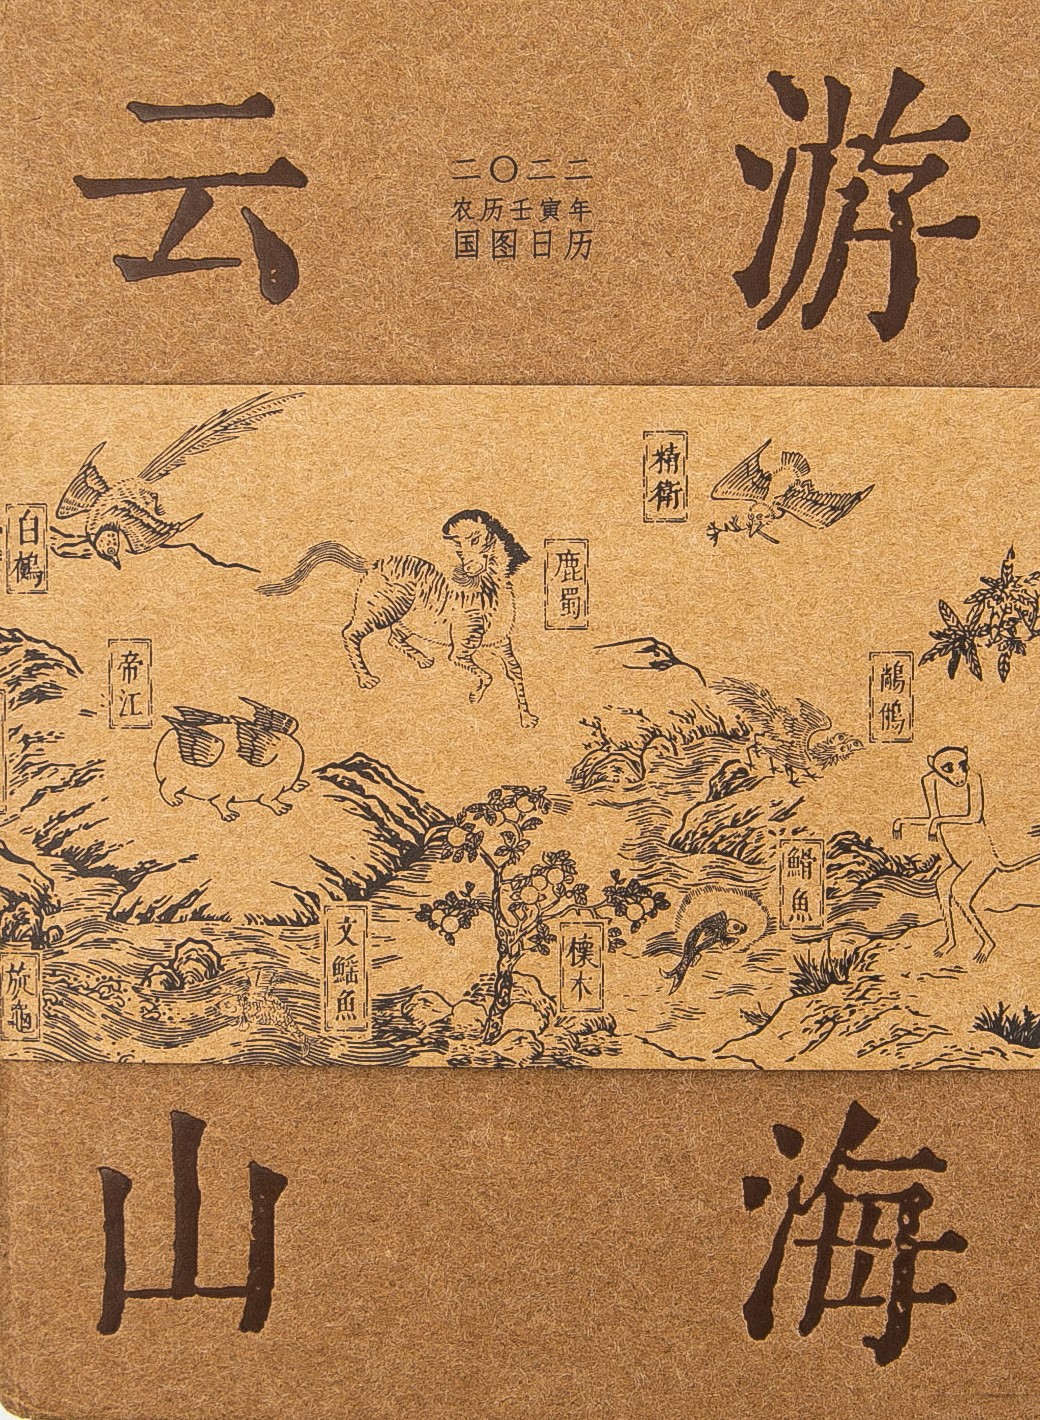 云游
二〇二二
农历壬寅年
国图日历
精衛
白鵺
鹿蜀
帝江
鴸鴸
鰼魚
文鰩魚
櫰木
旋龜
山海